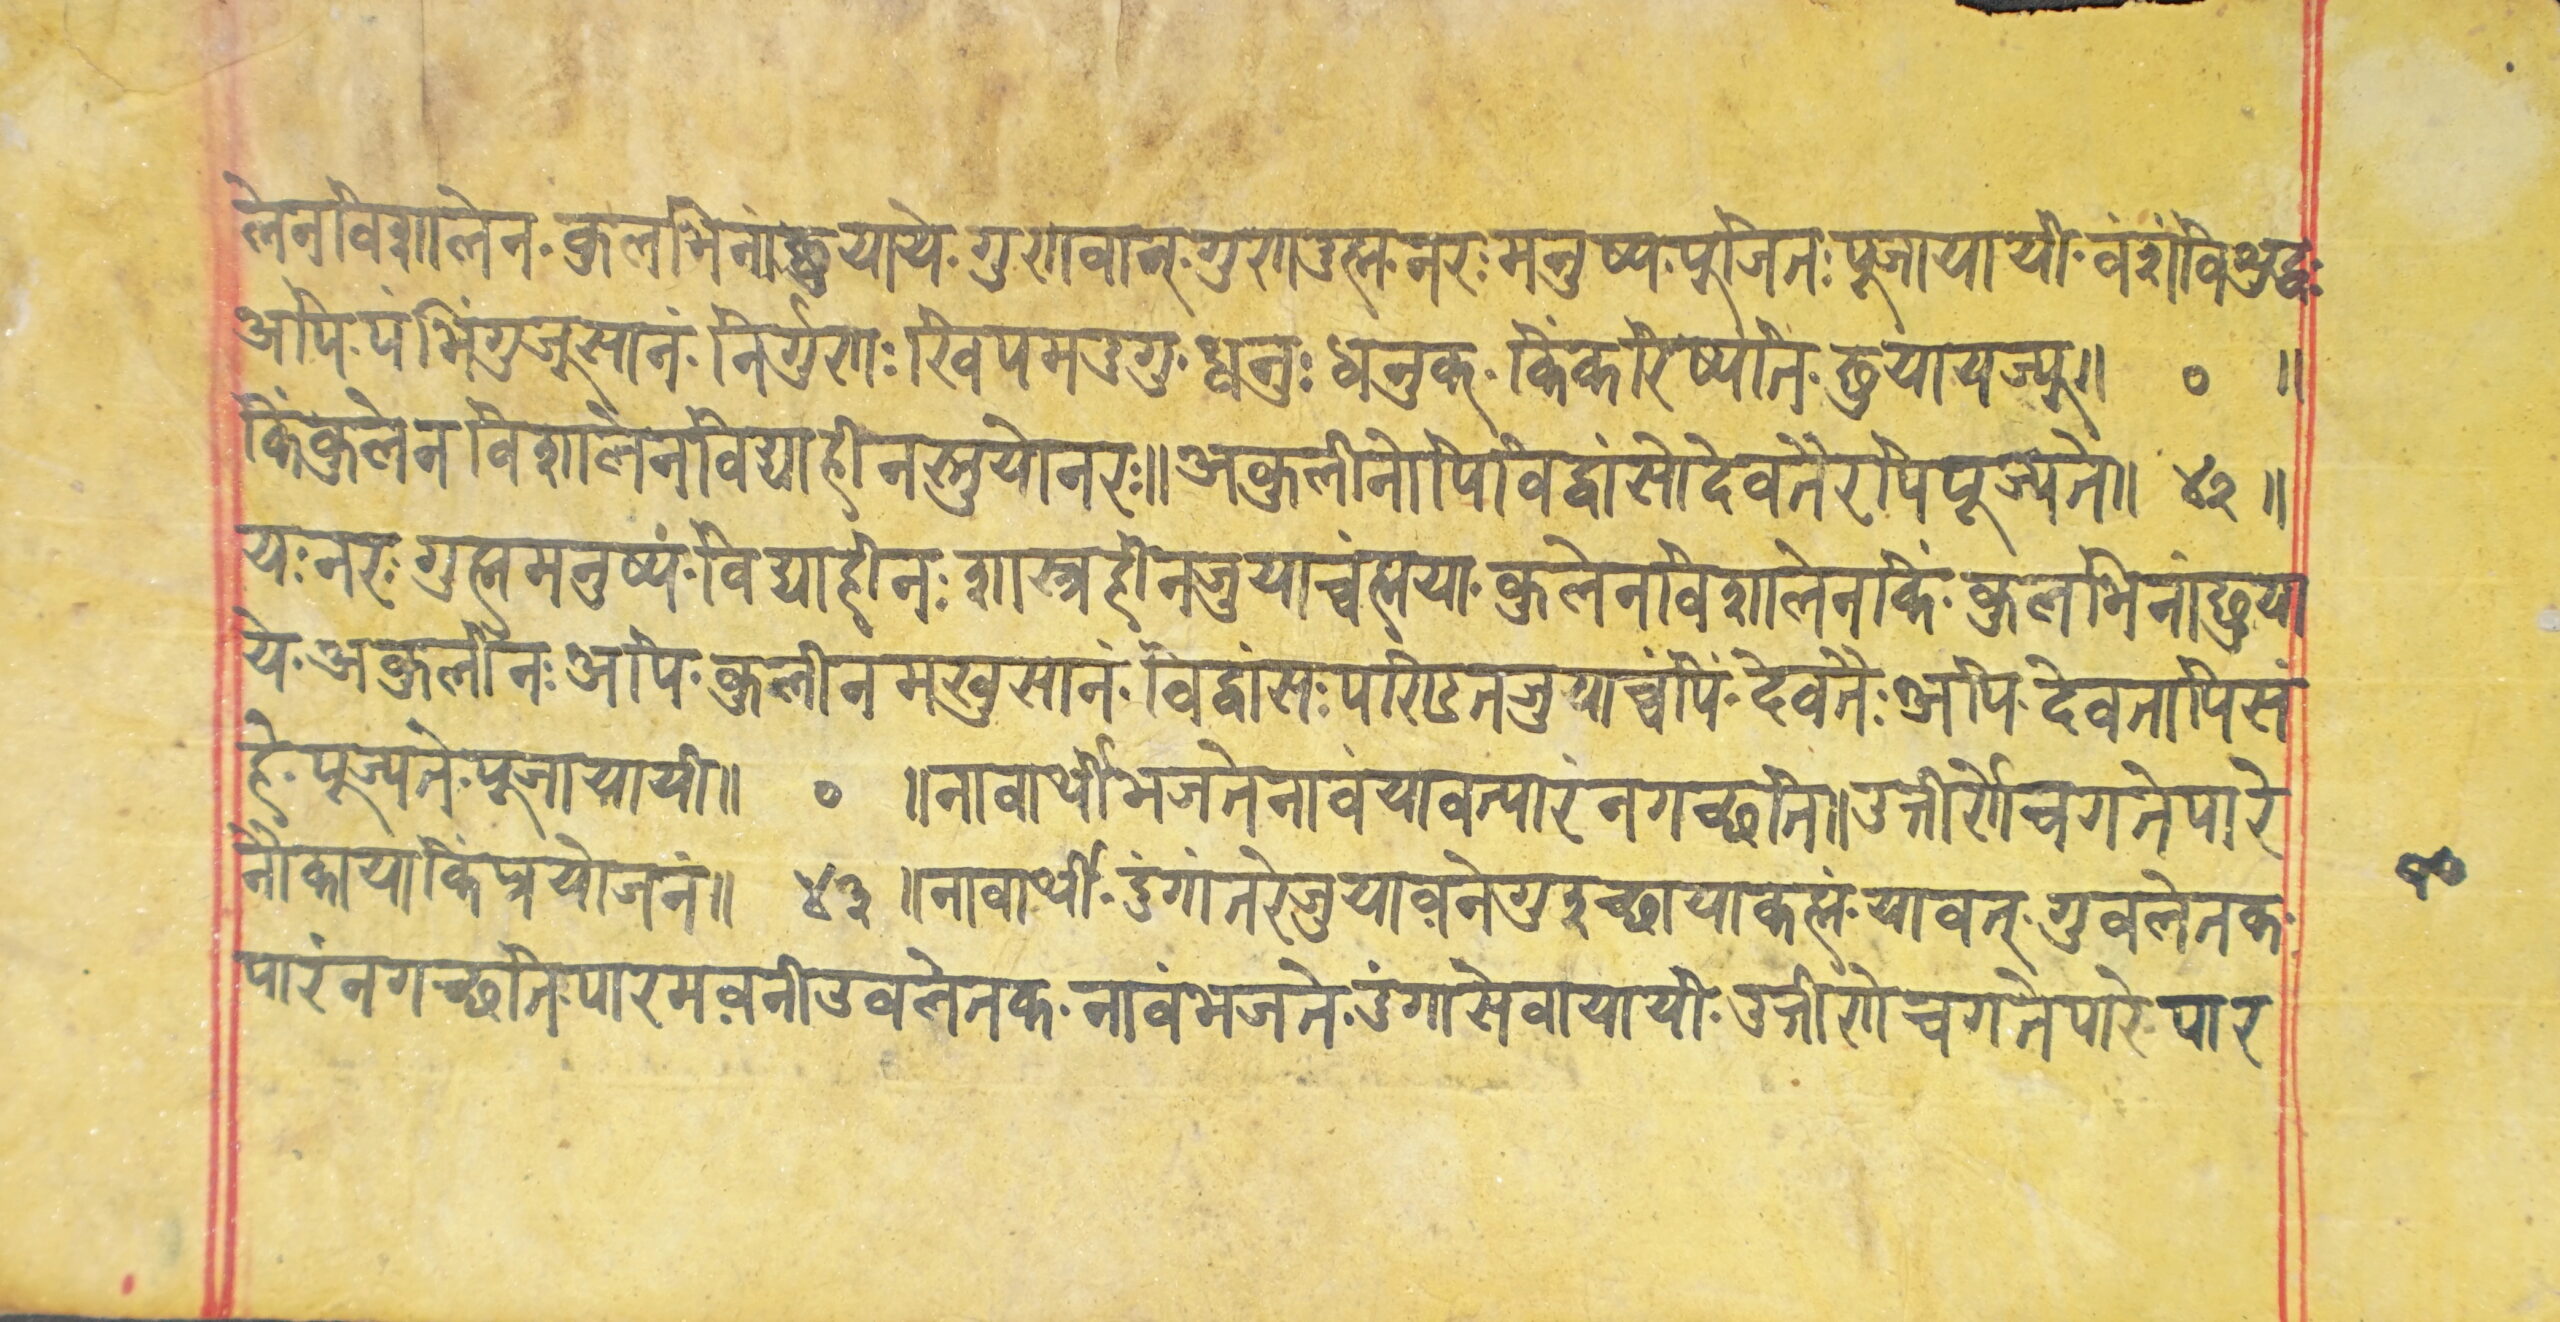 लेनविशालेन· कुलभिनांछुयाये· गुणवान्· गुणदुह्म· नरः मनुष्य· पूजितः पूजायायी· वंशंविशुद्धः
अपि· पंभिंगुजुसानं· निर्गुणः खिपमदुगु· धनुः धनुक्· किंकरिष्यति· छुयायज्यू॥ ० ॥
किंकुलेन विशालेनविद्याहीनस्तुयोनरः॥ अकुलीनोपिविद्वांसोदेवतैरपिपूज्यते॥ ४२ ॥
यः नरः गुह्ममनुष्यं· विद्याहीनः शास्त्रहीनजुयाच्वंह्मया· कुलेनविशालेनकिं· कुलभिनांछुया
ये· अकुलीनः अपि· कुलीनमखुसानं· विद्वांसः पण्डितजुयाच्वंपिं· देवतैः अपि· देवतापिसं
हे· पूज्यते· पूजायायी॥ ० ॥ नावार्थीभजतेनावंयावत्पारंनगच्छति॥ उत्तीर्णेचगतेपारे
नौकायाकिंप्रयोजनं॥ ४३ ॥ नावार्थी· दुंगांतरेजुयावनेगुइच्छायाकह्मं· यावत्· गुबलेतक·
पारंनगच्छति· पारमवनीउबलेतक· नावंभजते· दुंगासेवायायी· उत्तीर्णेचगतेपारे· पार
१०